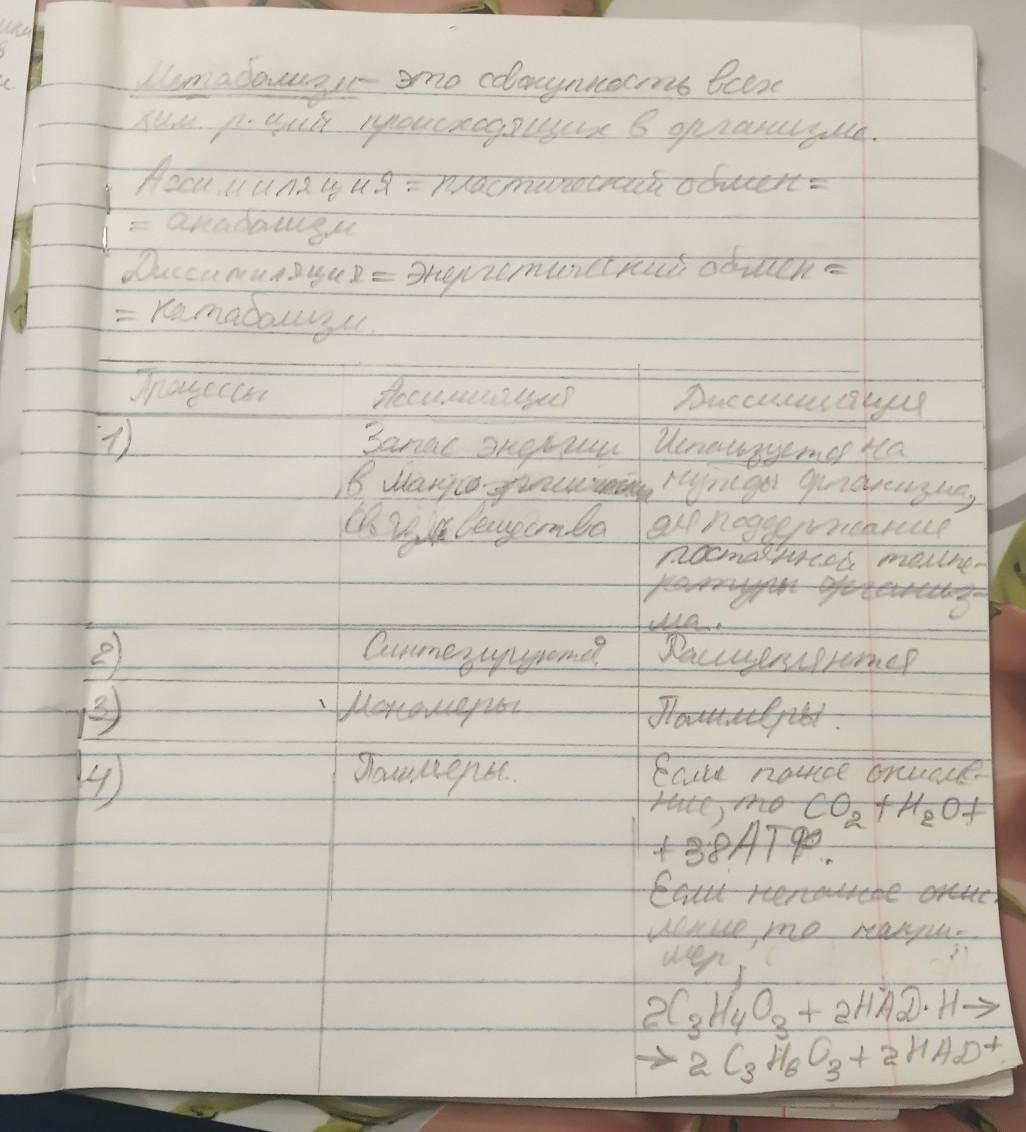 Метаболизм – это совокупность всех
хим. р-ций происходящих в организме.
Ассимиляция = пластический обмен =
= анаболизм
Диссимиляция = энергетический обмен =
= катаболизм.
Процессы Ассимиляция Диссимиляция
1) Запас энергии Используется на
в макро нужды организма,
связях вещества для поддержание
постоянной темпе-
ратуры организ-
ма.
2) Синтезируются Расщепляются
3) Мономеры Полимеры.
4) Полимеры. Если полное окисле-
ние, то CO₂ + H₂O +
+ 38 АТФ.
Если неполное окис-
ление, то напри-
мер,
2C₃H₄O₃ + 2НАD·H →
→ 2 C₃H₆O₃ + 2 НАD⁺